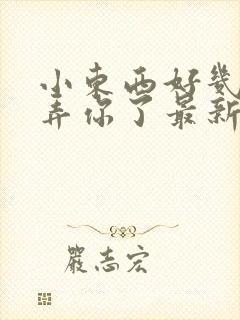 小東西好幾
弄你了最新
嚴志宏